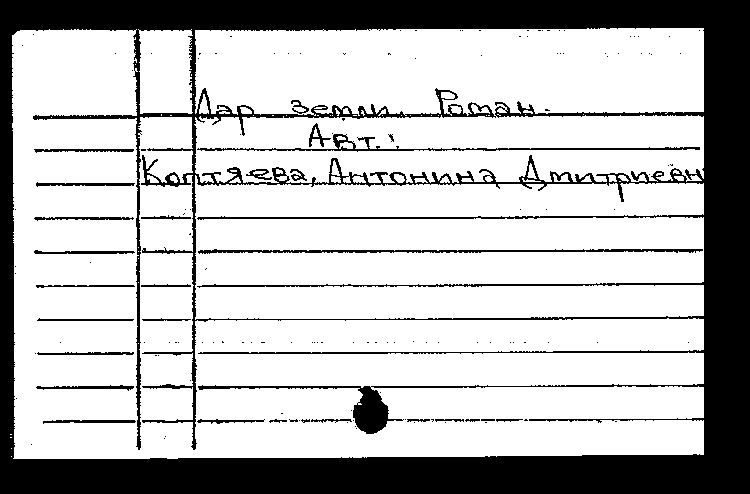 Дар земли. Роман.
Авт.:
Коптяева, Антонина Дмитриевн